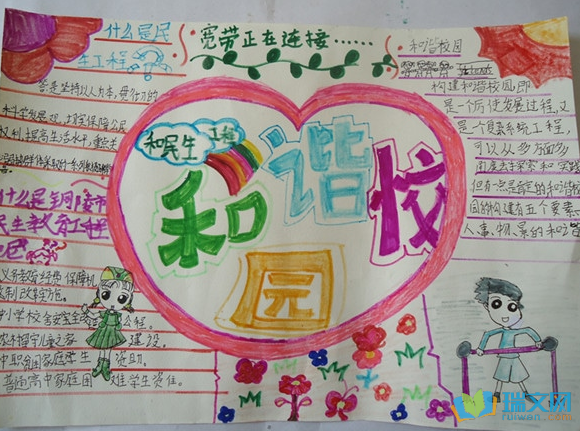 什么是民
生工程
答是坚持以人为本,贯彻的
科学发展观,切实保障公民
权利 提高生活水平,重点关
什么是铜陵市
民生教育工程
义务教育经费保障机
制改革实施。
中小学校舍安全改 工程。
农村留守儿童之家 建设。
中职贫困家庭学生 资助。
普通高中家庭困 难学生资住。
宽带正在连接……
和民生 工程
和谐校
园
和谐校园
构建和谐校园,即
是一个历史发展过程,又
是一个复杂系统工程,
可以从多方面多
角度去探索和实践
但有一点是肯定的和谐校
园的构建有五个要素
人、事、物、景的和谐
瑞文网
ruiwen.com